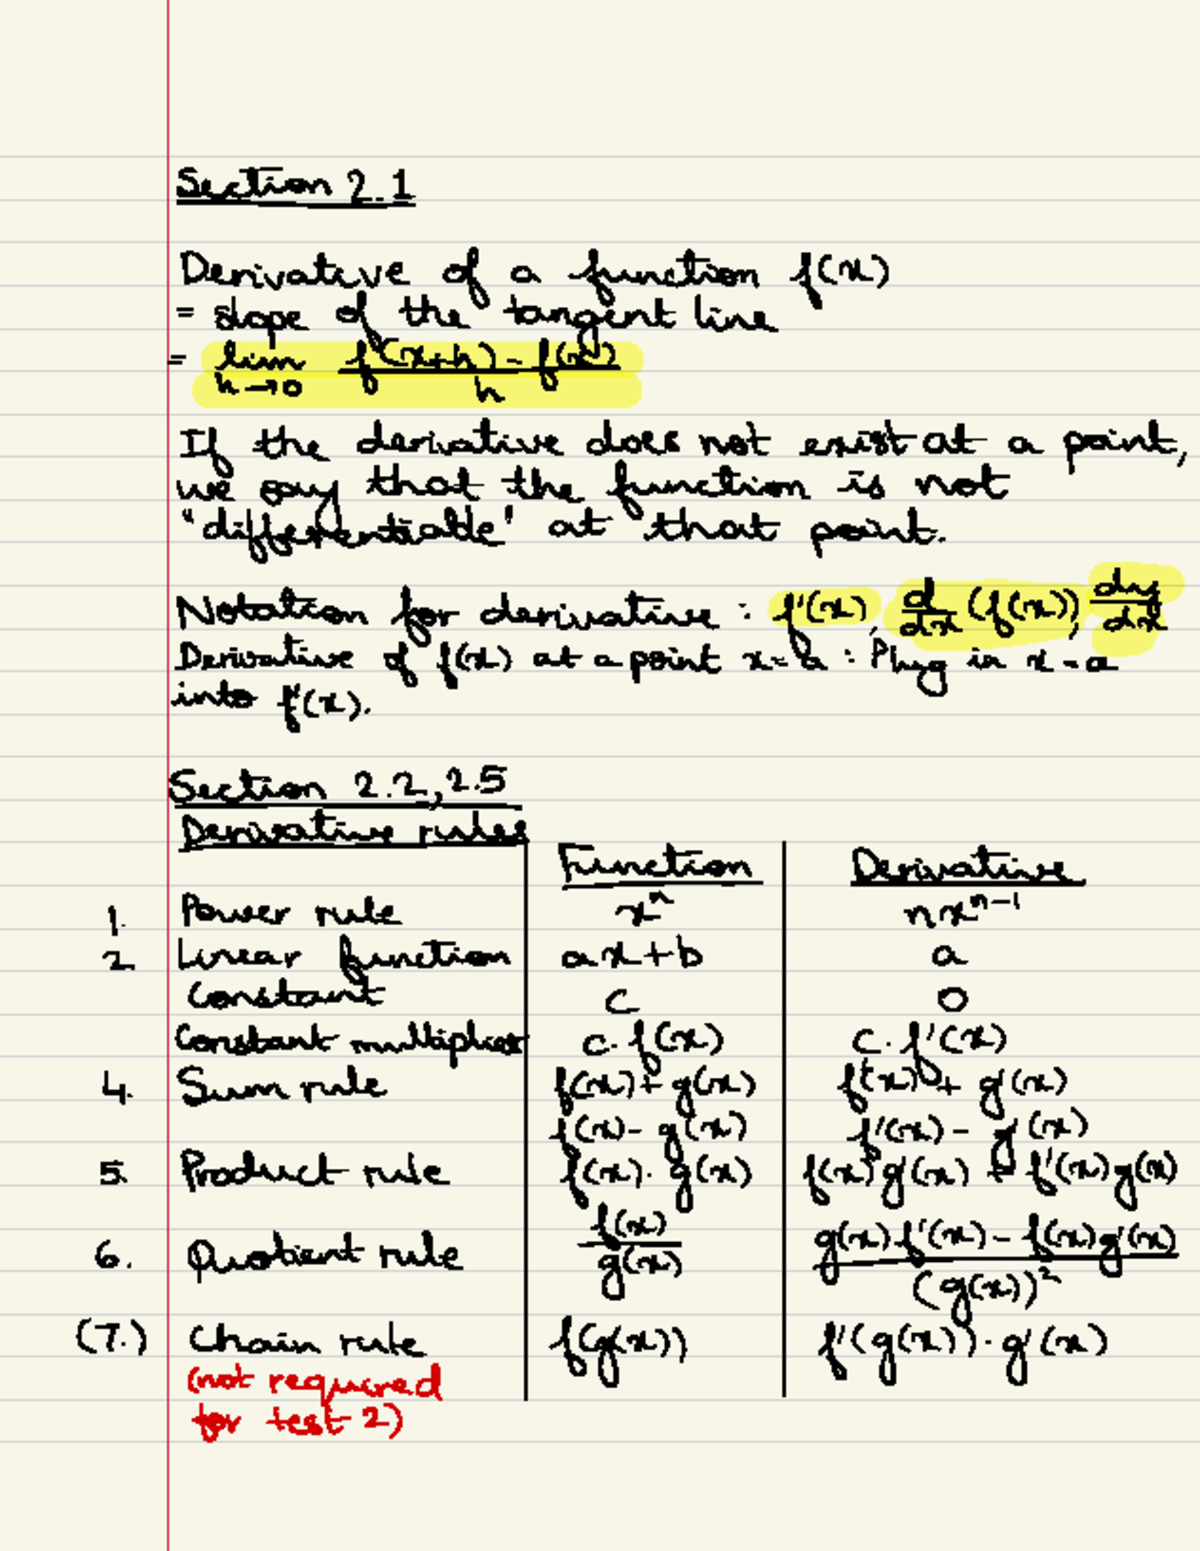 Section 2.1
Derivative of a function f(x)
= slope of the tangent line
= lim h→0 f(x+h) - f(x) / h
If the derivative does not exist at a point,
we say that the function is not
"differentiable" at that point.
Notation for derivative : f'(x), d/dx (f(x)), dy/dx
Derivative of f(x) at a point x=a : Plug in x=a
into f'(x).
Section 2.2, 2.5
Derivative rules
Function Derivative
1. Power rule xⁿ nxⁿ⁻¹
2 Linear function ax+b a
Constant c 0
Constant multiplier c·f(x) c·f'(x)
4. Sum rule f(x)+g(x) f'(x) + g'(x)
f(x) - g(x) f'(x) - g'(x)
5. Product rule f(x)·g(x) f(x)g'(x) + f'(x)g(x)
6. Quotient rule f(x)/g(x) g(x)f'(x) - f(x)g'(x) / (g(x))²
(7.) Chain rule f(g(x)) f'(g(x))·g'(x)
(not required
for test 2)